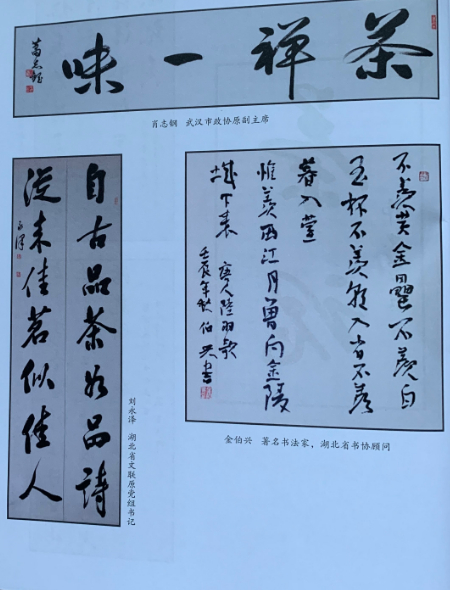 茶禅一味
萧志钢
肖志钢 武汉市政协原副主席
自古品茶如品詩
從来佳茗似佳人
永泽
刘永泽 湖北省文联原党组书记
不羡黄金罍不羡白
玉杯不羡朝入省不羡
暮入臺
惟羡西江月曾向金陵
城下来 唐人陸羽歌
壬辰年秋伯兴书
金伯兴 著名书法家,湖北省书协顾问